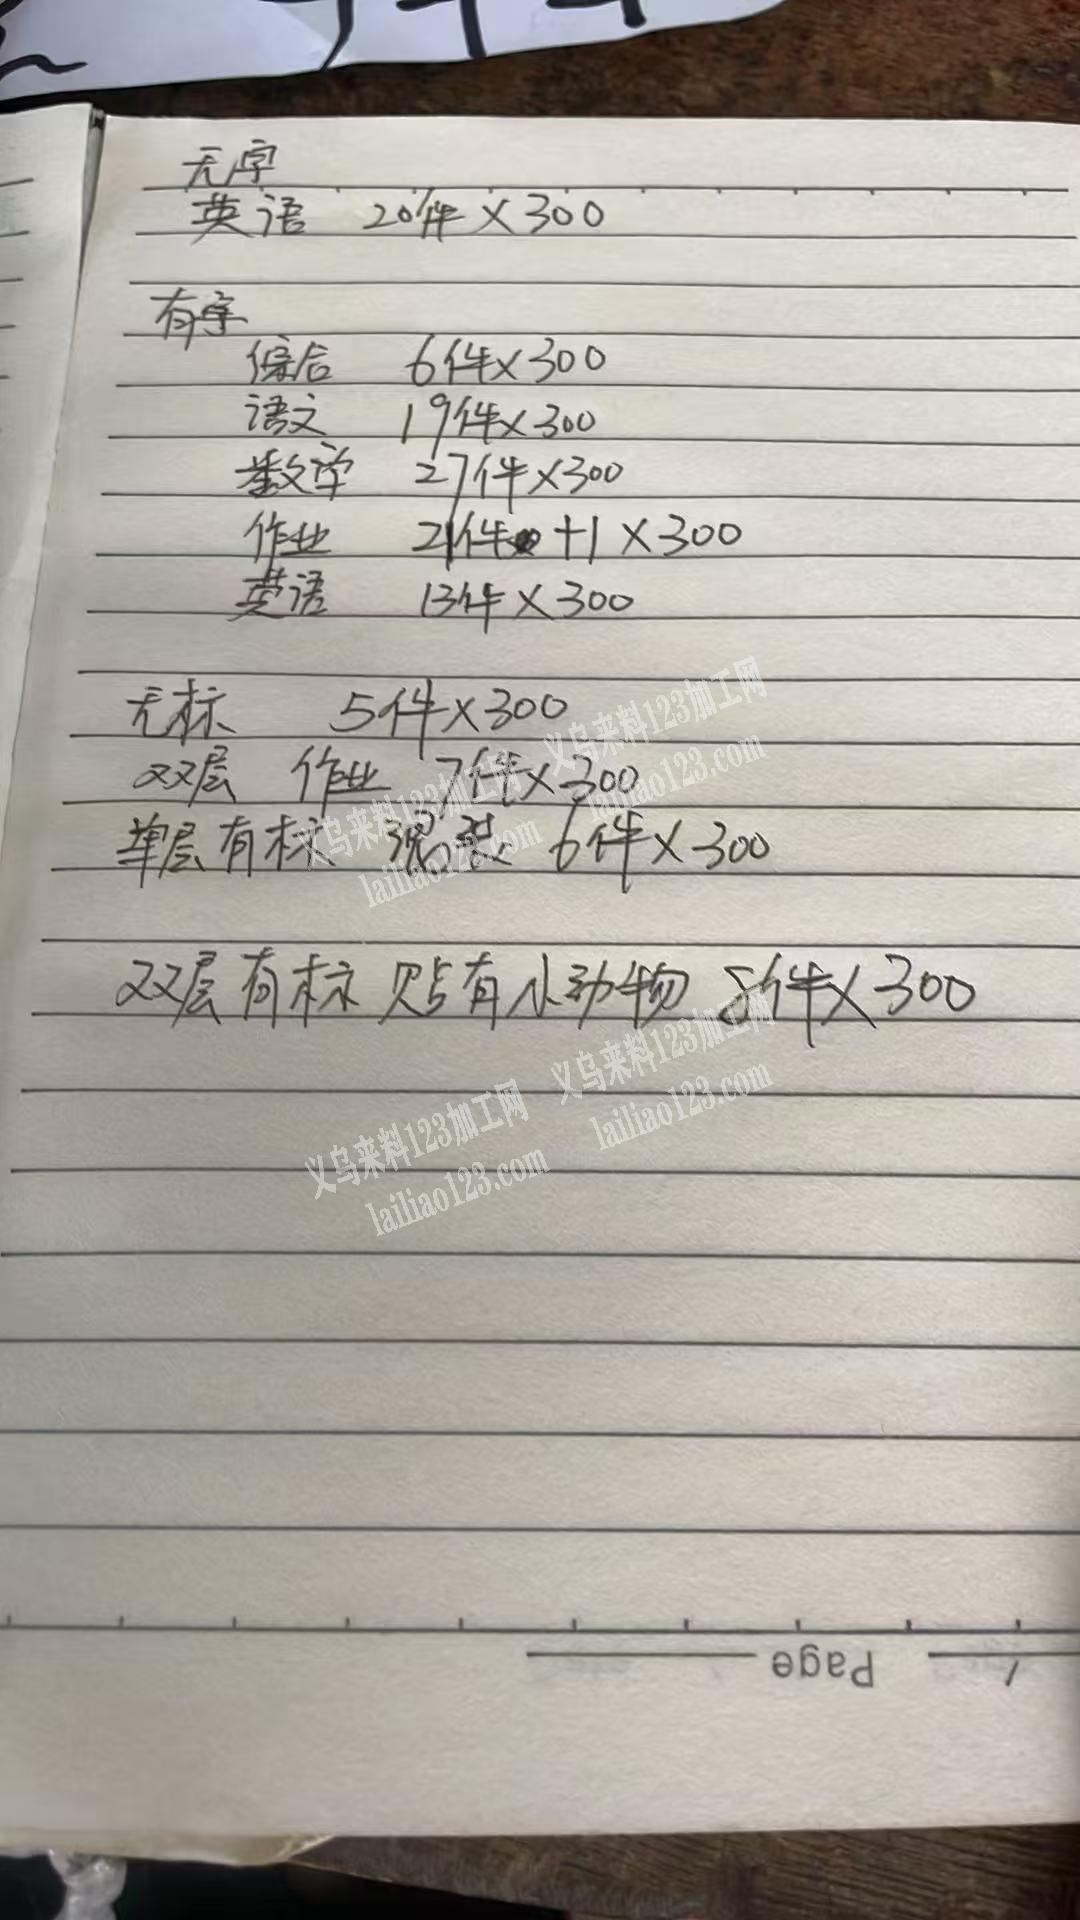 无字
英语 20件×300
有字
综合 6件×300
语文 19件×300
数学 27件×300
作业 21件+1×300
英语 13件×300
无标 5件×300
双层 作业 7件×300
单层有标 混装 6件×300
双层有标 贴有小动物 8件×300
义乌来料123加工网
lailiao123.com
义乌来料123加工网
lailiao123.com
义乌来料123加工网
lailiao123.com
义乌来料123加工网
lailiao123.com
Page